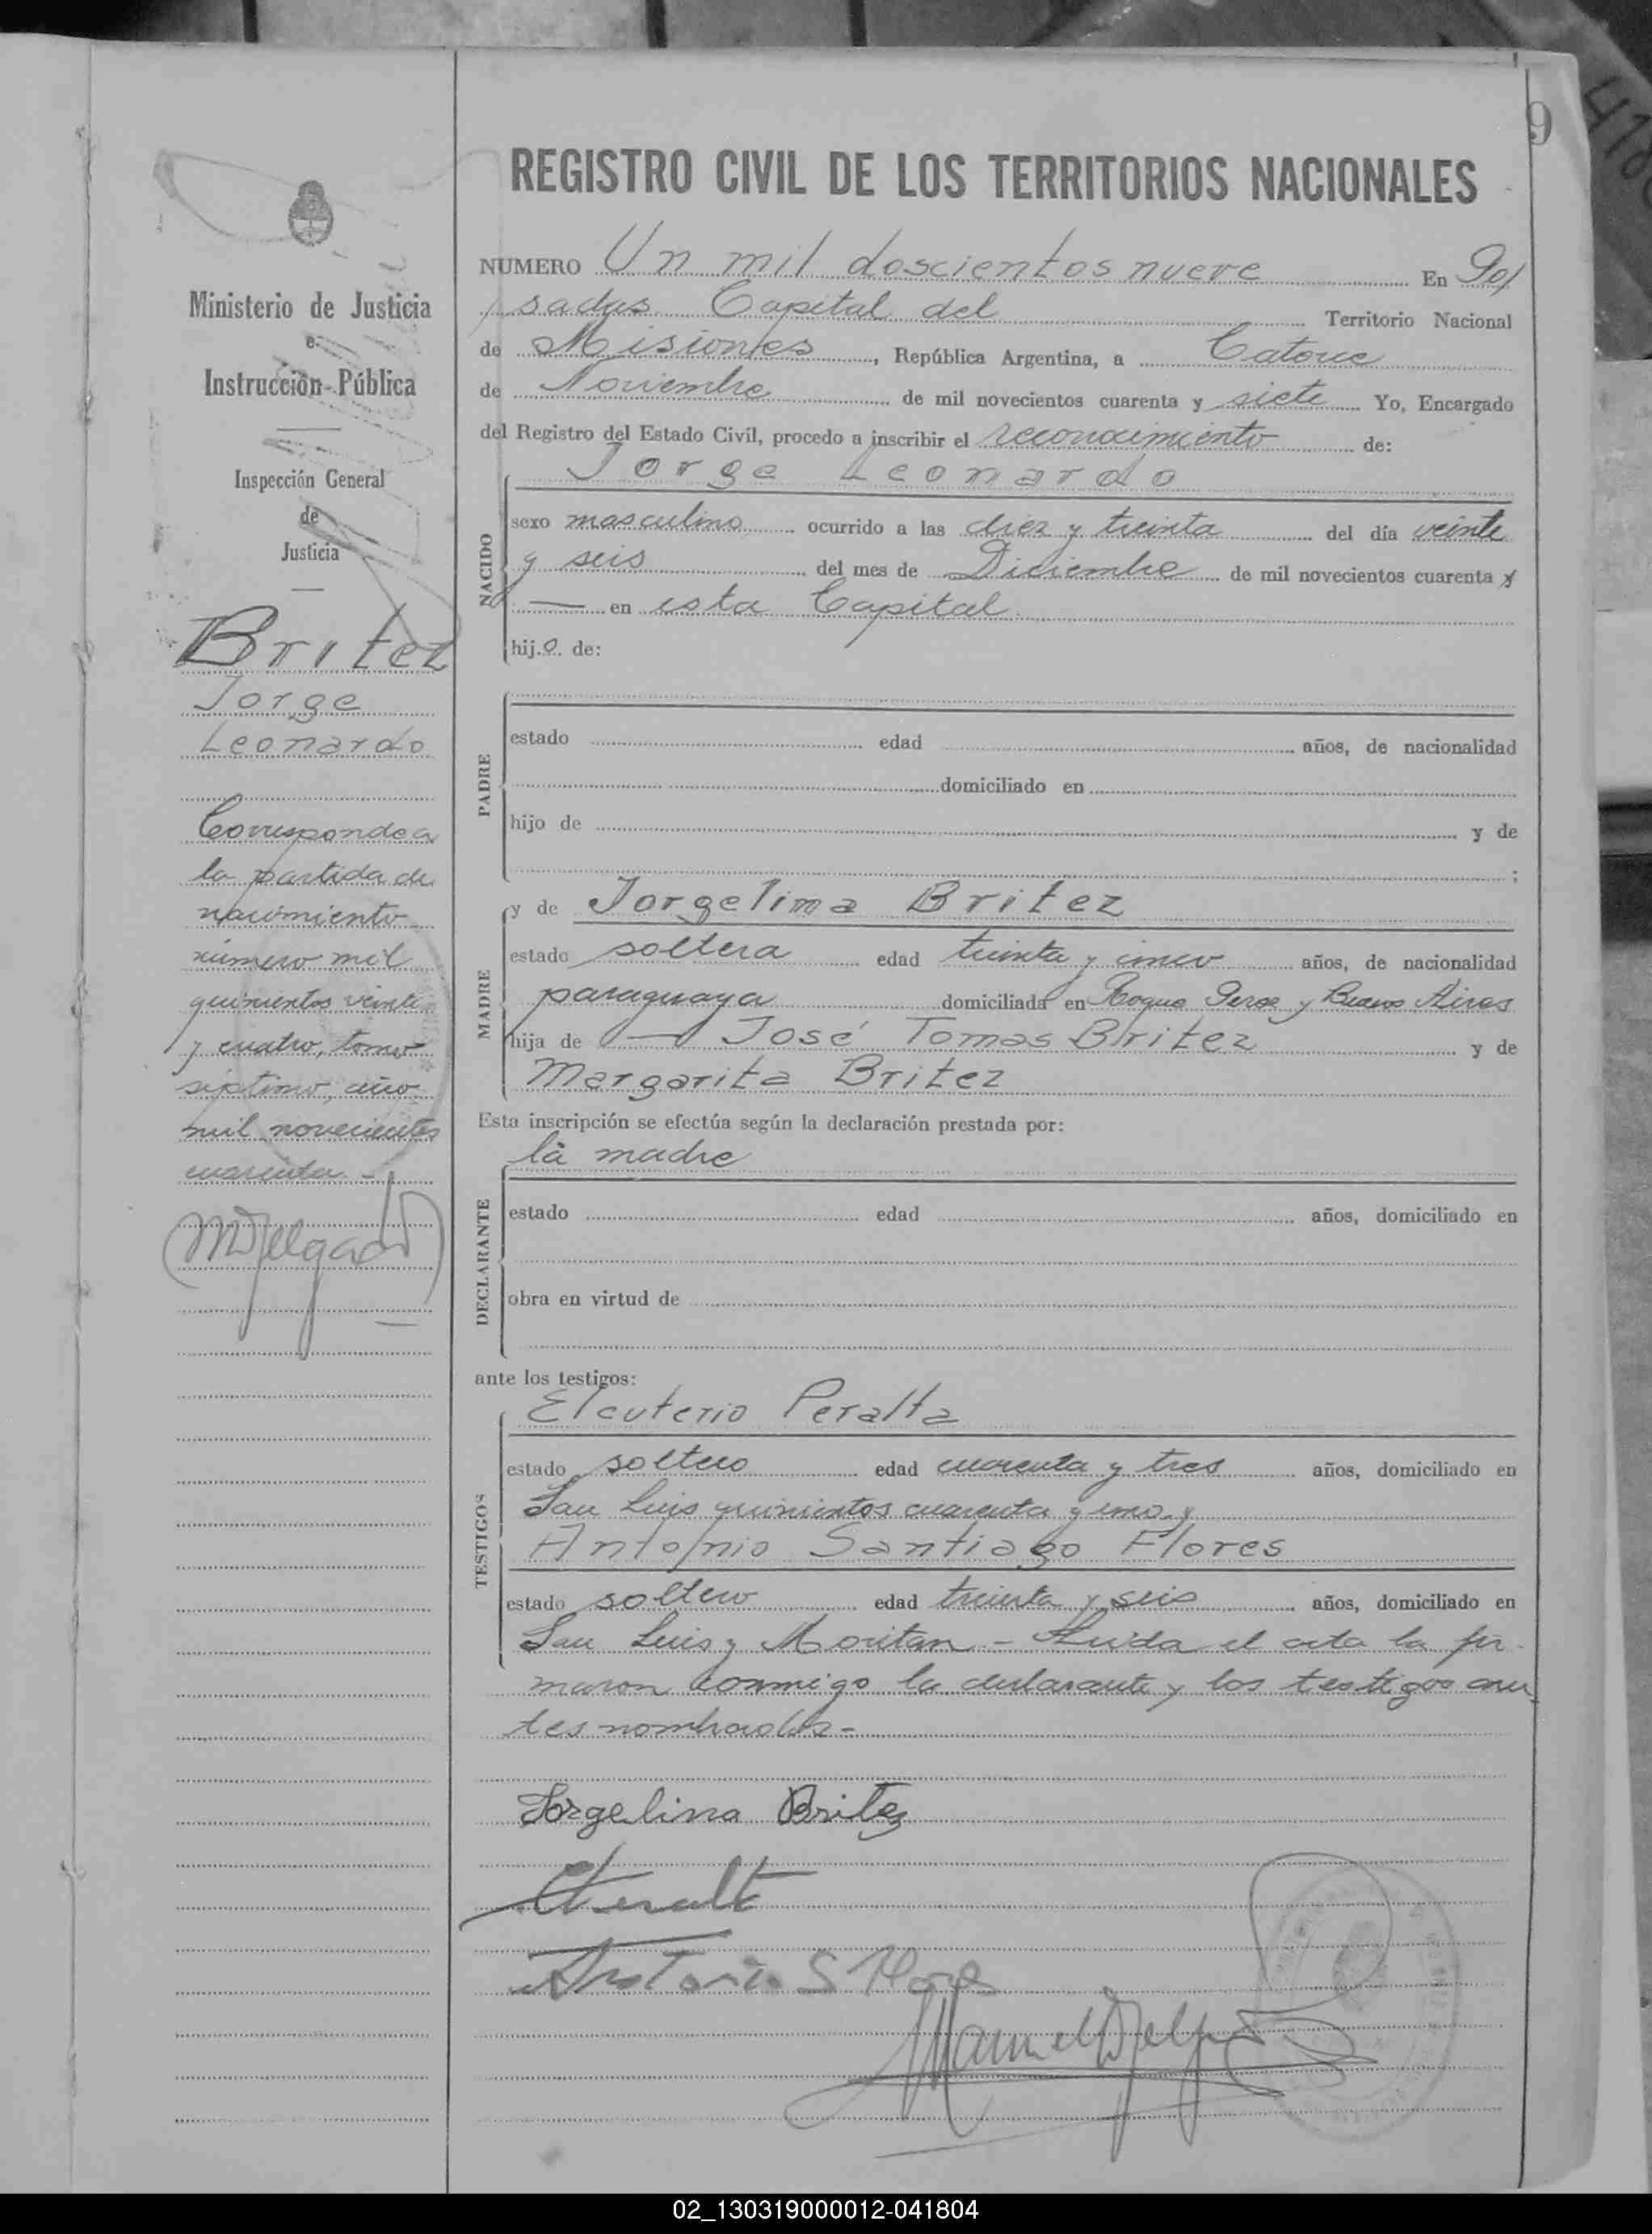 9
REGISTRO CIVIL DE LOS TERRITORIOS NACIONALES
NUMERO Un mil doscientos nueve En Po/
/sadas Capital del Territorio Nacional
de Misiones, República Argentina, a Catorce
de Noviembre de mil novecientos cuarenta y siete Yo, Encargado
del Registro del Estado Civil, procedo a inscribir el reconocimiento de:
Jorge Leonardo
NACIDO
sexo masculino ocurrido a las diez y treinta del día veinte
y seis del mes de Diciembre de mil novecientos cuarenta y
— en esta Capital
hijo de:
PADRE
estado edad años, de nacionalidad
domiciliado en
hijo de y de
;
y de Jorgelina Britez
MADRE
estado soltera edad treinta y cinco años, de nacionalidad
paraguaya domiciliada en Roque Perez y Buenos Aires
hija de — José Tomas Britez y de
Margarita Britez
Esta inscripción se efectúa según la declaración prestada por:
la madre
DECLARANTE
estado edad años, domiciliado en
obra en virtud de
ante los testigos:
Eleuterio Peralta
TESTIGOS
estado soltero edad cuarenta y tres años, domiciliado en
San Luis quinientos cuarenta y uno y
Antonio Santiago Flores
estado soltero edad treinta y seis años, domiciliado en
San Luis y Moritan - Leida el acta la fir-
maron conmigo la declarante y los testigos an-
tes nombrados -
Jorgelina Britez
Antonio S Flores
Ministerio de Justicia
e
Instrucción Pública
Inspección General
de
Justicia
Britez
Jorge
Leonardo
Corresponde a
la partida de
nacimiento
número mil
quinientos veinte
y cuatro, tomo
séptimo, año
mil novecientos
cuarenta -
MDelgado
02_130319000012-041804